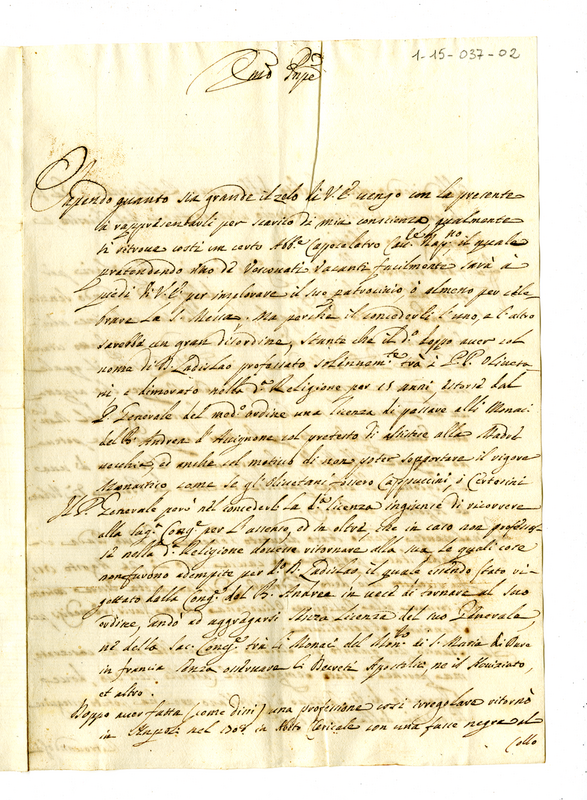 1-15-037-02
Em̃o Prn̄pe
Sapendo quanto sia grande il zelo di V. Eª. uengo con la presente
à rappresentarli per scarico di mia conscienza qualmente
si ritroua costi un certo Abbᵉ Cappocelatro Cauʳ. Napⁿᵒ. il quale
pretendendo uno de Vescouati Vacanti facilmente sarà à
piedi di V. Eª. per implorare il suo patrocinio ò almeno per cele-
brare la S. Messa. Ma perche il concederli l'uno, e l'altro
sarebbe un gran disordine, stante che il dº. doppo auer col
nome di D. Ladislao professato solennemᵗᵉ. trà i P.P. Oliueta-
ni, e dimorato nella dª. Religione per 15 anni estorse dal
P. Generale del medº. ordine una licenza di passare alli Monaci
del B. Andrea d'Auignone col pretesto di assistere alla Madre
uecchia, ed anche sul motiuo di non poter sopportare il rigore
Monastico come se gl'Oliuetani fossero Cappuccini, ò Certosini
Il P. Generale però nel concederli la dª. licenza ingiunse di ricorrere
alla Sagª. Congª. per l'assenso, ed in oltre che in caso non professas-
se nella dª. Religione douesse ritornare alla sua, le quali cose
non furono adempite per dº. D. Ladislao, il quale essendo stato ri-
gettato dalla Congª. del B. Andrea in uece di tornare al suo
ordine, andò ad aggregarsi senza licenza del suo Generale,
nè della Sac. Congª. trà li Monaci del Monº. di S. Maria di
in francia senza osseruare li Decreti Apostolici, ne il Nouiziato,
et altro.
Doppo auer fatta (come dissi) una professione cosi irregolare ritornò
in Napoli nel in Abito Clericale con una fasce negra al
Collo